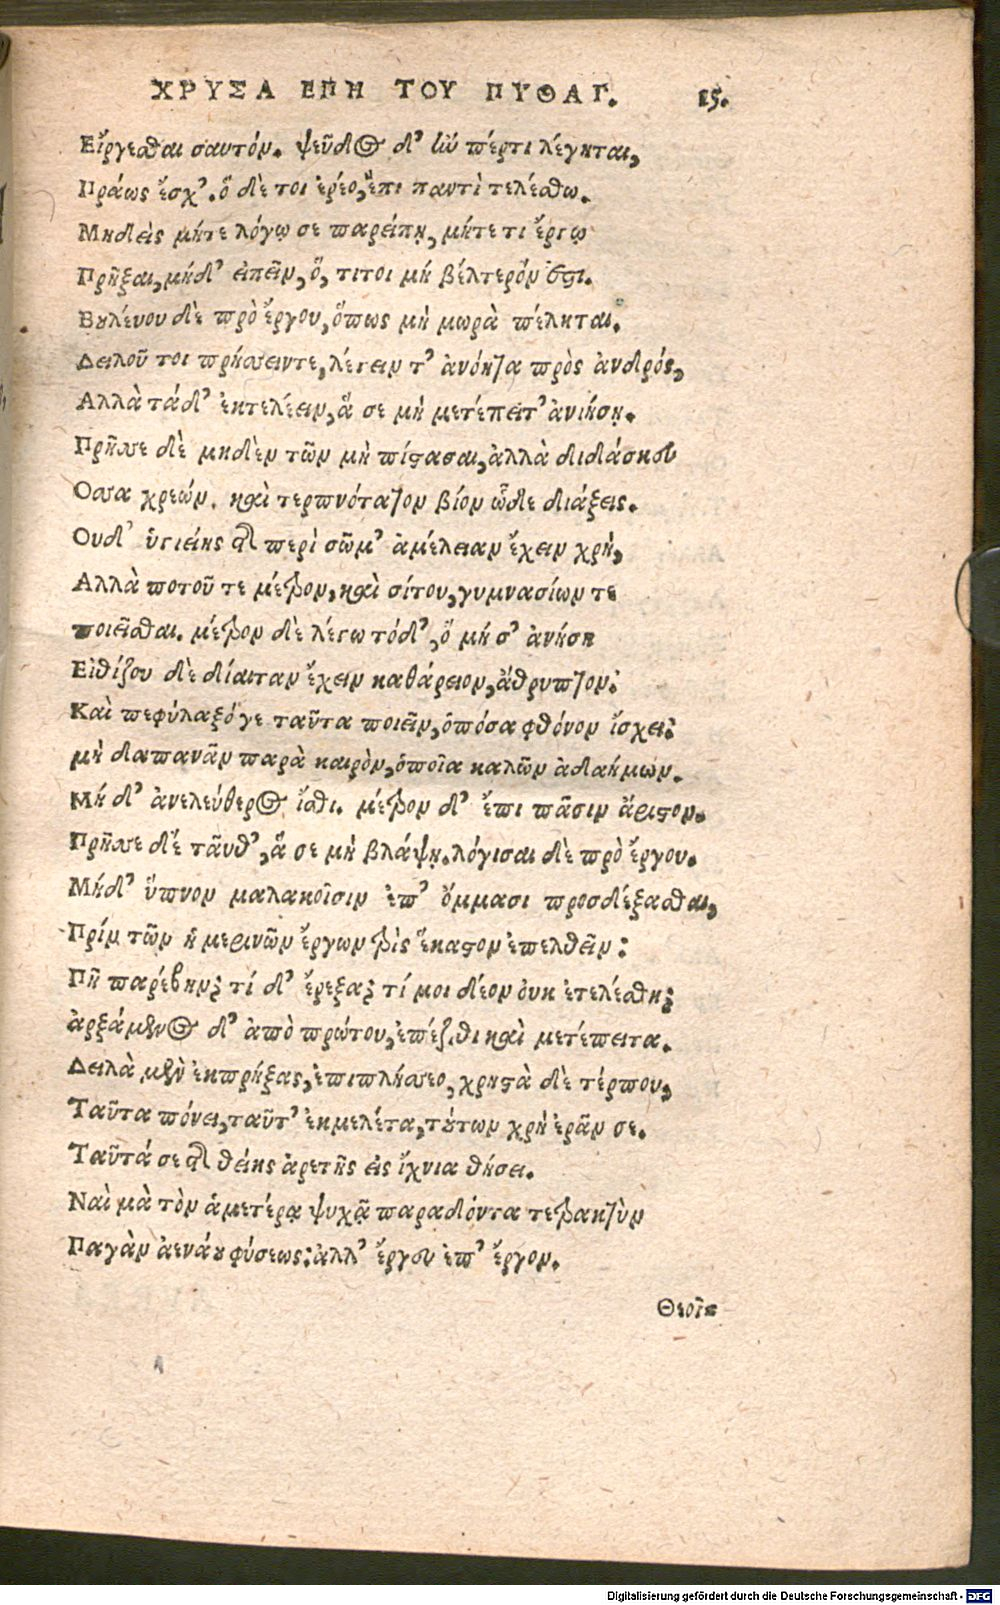 ΧΡΥΣΑ ΕΠΗ ΤΟΥ ΠΥΘΑΓ. 15.
Εἴργεσθαι σαυτόν. ψεῦδος δ’ ἢν πέρ τι λέγηται,
Πράως ἔσχ’. ὅ δὲ τοι ἐρέω, ἔπι παντὶ τελέσθω.
Μηδεὶς μήτε λόγῳ σε παρείπῃ, μήτε τι ἔργῳ
Πρῆξαι, μήδ’ εἰπεῖν, ὅ, τι τοι μή βέλτερόν ἐστι.
Βουλέυου δὲ πρὸ ἔργου, ὅπως μὴ μωρὰ πέληται.
Δειλοῦ τοι πρήσσειν τε, λέγειν τ’ ἀνόητα πρὸς ἀνδρός,
Αλλὰ τάδ’ ἐκτελέειν, ἅ σε μὴ μετέπειτ’ ἀνιήσῃ.
Πρῆσσε δὲ μηδὲν τῶν μὴ πίστασαι, ἀλλὰ διδάσκου
Οσσα χρεών. καὶ τερπνότατον βίον ὧδε διάξεις.
Ουδ’ ὑγιείης τῆς περὶ σῶμ’ ἀμέλειαν ἔχειν χρή,
Αλλὰ ποτοῦ τε μέτρον, καὶ σίτου, γυμνασίων τε
ποιεῖσθαι. μέτρον δὲ λέγω τόδ’, ὅ μή σ’ ἀνιήσῃ
Εἰθίζου δὲ δίαιταν ἔχειν καθάρειον, ἄθρυπτον:
Καὶ πεφύλαξό γε ταῦτα ποιεῖν, ὁπόσα φθόνον ἴσχει:
μὴ δαπανᾶν παρὰ καιρὸν, ὁποῖα καλῶν ἀδαήμων.
Μή δ’ ἀνελεύθερος ἴσθι. μέτρον δ’ ἔπι πᾶσιν ἄριστον.
Πρῆσσε δέ ταῦθ’, ἅ σε μὴ βλάψῃ. λόγισαι δὲ πρὸ ἔργου.
Μήδ’ ὕπνον μαλακοῖσιν ἐπ’ ὄμμασι προσδέξασθαι,
Πρίν τῶν ἡμερινῶν ἔργων τρὶς ἕκαστον ἐπελθεῖν:
Πῆ παρέβην; τί δ’ ἔρεξα; τί μοι δέον ὀυκ ἐτελέσθη;
ἀρξάμενος δ’ ἀπὸ πρώτου, ἐπέξιθι καὶ μετέπειτα.
Δειλὰ μὲν ἐκπρήξας, ἐπιπλήσσεο, χρηστὰ δὲ τέρπου,
Ταῦτα πόνει, ταῦτ’ ἐκμελέτα, τούτων χρὴ ἐρᾶν σε.
Ταῦτά σε τῆς θείης ἀρετῆς εἰς ἴχνια θήσει.
Ναὶ μὰ τὸν ἁμετέρᾳ ψυχᾷ παραδόντα τετρακτὺν
Παγὰν ἀενάου φύσεως: ἀλλ’ ἔργου ἐπ’ ἔργον.
Θεοῖσ
Digitalisierung gefördert durch die Deutsche Forschungsgemeinschaft - DFG